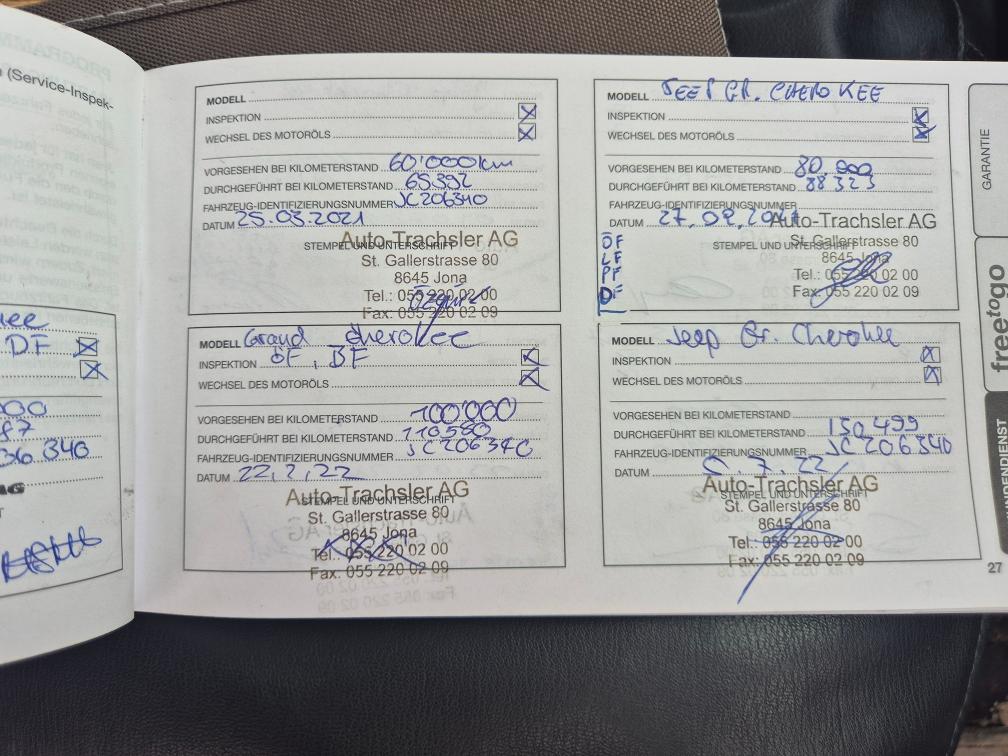 (Service-Inspek-
DF
340
MODELL
INSPEKTION
WECHSEL DES MOTORÖLS
VORGESEHEN BEI KILOMETERSTAND 60'000km
DURCHGEFÜHRT BEI KILOMETERSTAND 65392
FAHRZEUG-IDENTIFIZIERUNGSNUMMER JC206340
DATUM 25.03.2021
STEMPEL UND UNTERSCHRIFT
Auto-Trachsler AG
St. Gallerstrasse 80
8645 Jona
Tel.: 055 220 02 00
Fax: 055 220 02 09
MODELL JEEP GR. CHEROKEE
INSPEKTION
WECHSEL DES MOTORÖLS
VORGESEHEN BEI KILOMETERSTAND 80.000
DURCHGEFÜHRT BEI KILOMETERSTAND 88323
FAHRZEUG-IDENTIFIZIERUNGSNUMMER
DATUM
STEMPEL UND UNTERSCHRIFT
Auto-Trachsler AG
St. Gallerstrasse 80
8645 Jona
Tel.: 055 220 02 00
Fax: 055 220 02 09
ÖF
LF
PF
DF
MODELL Grand Cherokee
INSPEKTION ÖF, BF
WECHSEL DES MOTORÖLS
VORGESEHEN BEI KILOMETERSTAND 100'000
DURCHGEFÜHRT BEI KILOMETERSTAND 110580
FAHRZEUG-IDENTIFIZIERUNGSNUMMER JC206340
DATUM 22,2,22
STEMPEL UND UNTERSCHRIFT
Auto-Trachsler AG
St. Gallerstrasse 80
8645 Jona
Tel.: 055 220 02 00
Fax: 055 220 02 09
MODELL Jeep Gr. Cherokee
INSPEKTION
WECHSEL DES MOTORÖLS
VORGESEHEN BEI KILOMETERSTAND
DURCHGEFÜHRT BEI KILOMETERSTAND 130,499
FAHRZEUG-IDENTIFIZIERUNGSNUMMER JC206340
DATUM
STEMPEL UND UNTERSCHRIFT
Auto-Trachsler AG
St. Gallerstrasse 80
8645 Jona
Tel.: 055 220 02 00
Fax: 055 220 02 09
GARANTIE
freetogo
NDENDIENST
27